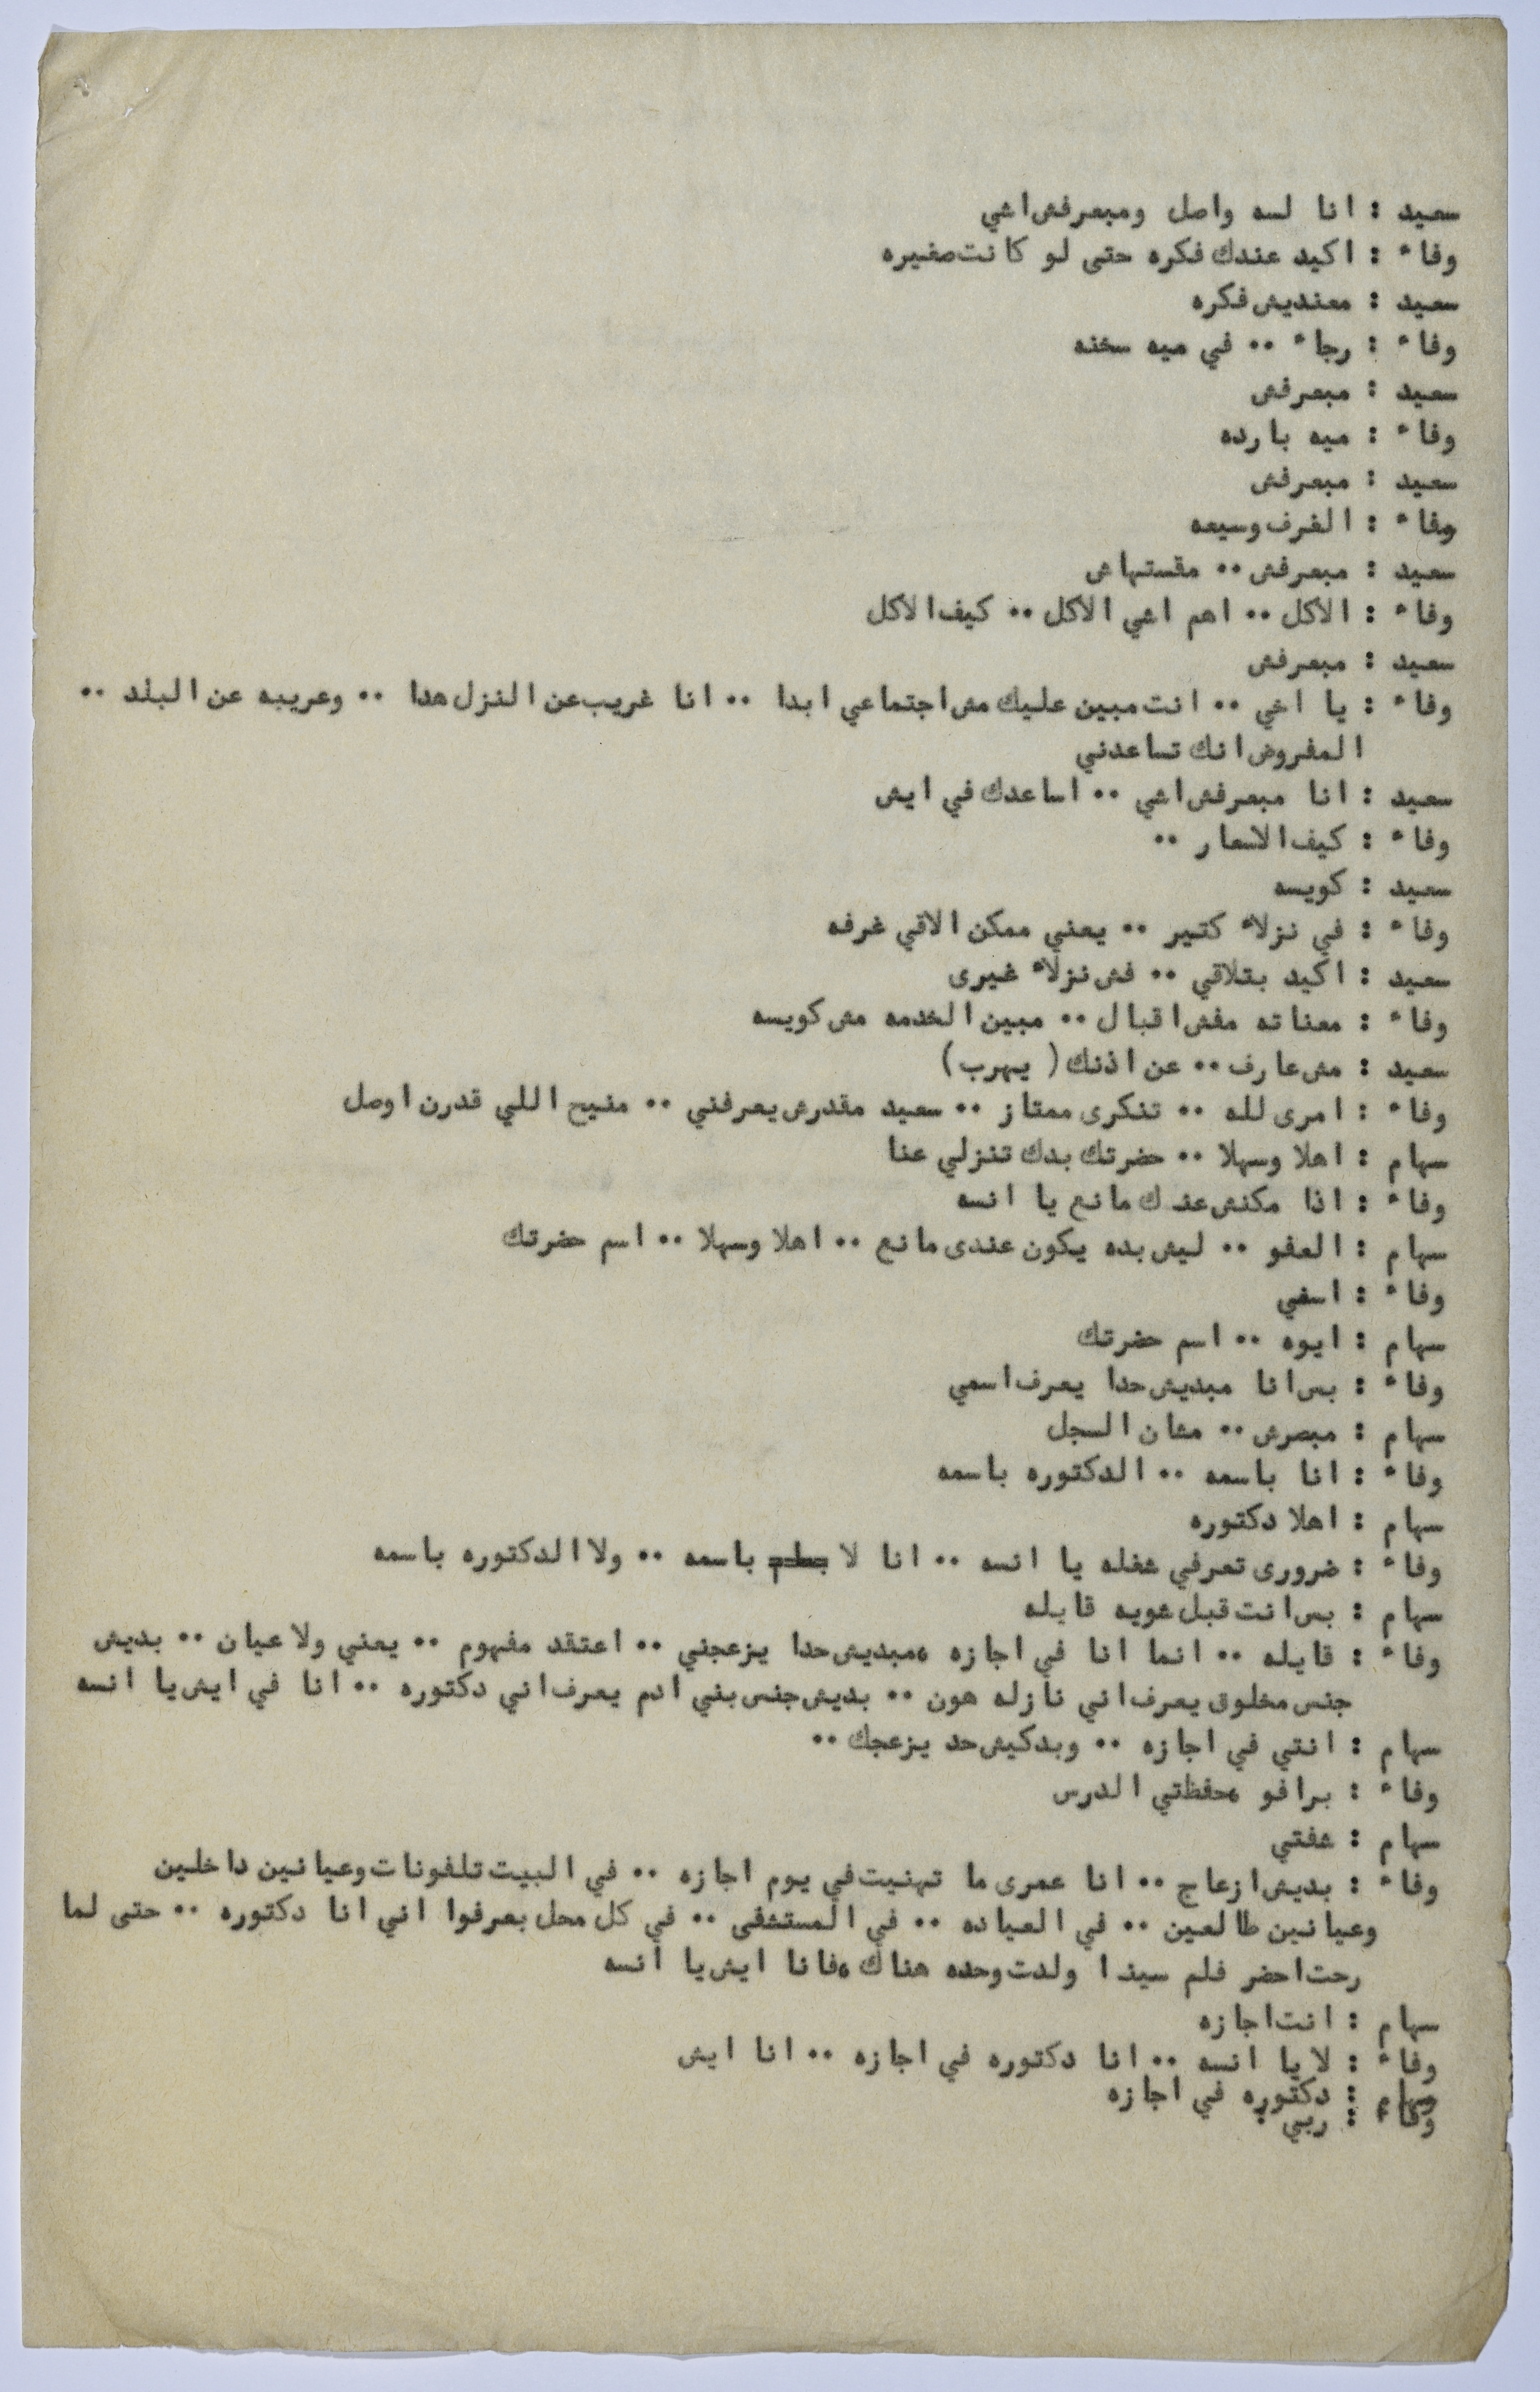 سعيد : انا لسه واصل ومبعرفش اشي
وفاء : اكيد عندك فكره حتى لو كانت صغيره
سعيد : معنديش فكره
وفاء : رجاء .. في ميه سخنه
سعيد : مبعرفش
وفاء : ميه بارده
سعيد : مبعرفش
وفاء : الغرف وسيعه
سعيد : مبعرفش .. مقستهاش
وفاء : الاكل .. اهم اشي الاكل .. كيف الاكل
سعيد : مبعرفش
وفاء : يا اخي .. انت مبين عليك مش اجتماعي ابدا .. انا غريب عن النزل هدا .. وعريبه عن البلد ..
المفروض انك تساعدني
سعيد : انا مبعرفش اشي .. اساعدك في ايش
وفاء : كيف الاسعار ..
سعيد : كويسه
وفاء : في نزلاء كتير .. يعني ممكن الاقي غرفه
سعيد : اكيد بتلاقي .. فش نزلاء غيرى
وفاء : معناته مفش اقبال .. مبين الخدمه مش كويسه
سعيد : مش عارف .. عن اذنك ( يهرب )
وفاء : امرى لله .. تنكرى ممتاز .. سعيد مقدرش يعرفني .. منيح اللي قدرن اوصل
سهام : اهلا وسهلا .. حضرتك بدك تنزلي عنا
وفاء : اذا مكنش عندك مانع يا انسه
سهام : العفو .. ليش بده يكون عندى مانع .. اهلا وسهلا .. اسم حضرتك
وفاء : اسفي
سهام : ايوه .. اسم حضرتك
وفاء : بس انا مبديش حدا يعرف اسمي
سهام : مبصرش .. مشان السجل
وفاء : انا باسمه .. الدكتوره باسمه
سهام : اهلا دكتوره
وفاء : ضرورى تعرفي شغله يا انسه .. انا لا باسمه .. ولا الدكتوره باسمه
سهام : بس انت قبل شويه قايله
وفاء : قايله .. انما انا في اجازه ،مبديش حدا يزعجني .. اعتقد مفهوم .. يعني ولا عيان .. بديش
جنس مخلوق يعرف اني نازله هون .. بديش جنس بني ادم يعرف اني دكتوره .. انا في ايش يا انسه
سهام : انتي في اجازه .. وبدكيش حد يزعجك ..
وفاء : برافو ،حفظتي الدرس
سهام : شفتي
وفاء : بديش ازعاج .. انا عمرى ما تهنيت في يوم اجازه .. في البيت تلفونات وعيانين داخلين
وعيانين طالعين .. في العياده .. في المستشفى .. في كل محل بعرفوا اني انا دكتوره .. حتى لما
رحت احضر فلم سينما ولدت وحده هناك ،فانا ايش يا انسه
سهام : انت اجازه
وفاء : لا يا انسه .. انا دكتوره في اجازه .. انا ايش
سهام : دكتوره في اجازه
وفاء : ربي